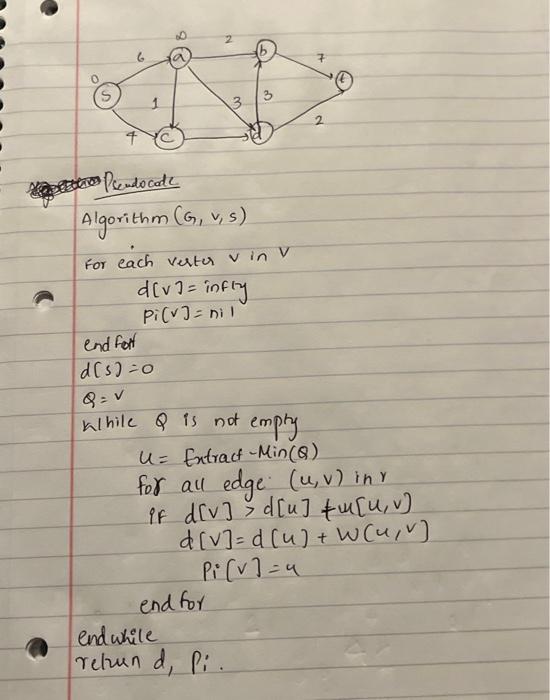 ∞
2
6
a
b
7
0
S
1
3
3
t
4
C
d
2
Pseudocode
Algorithm (G, V, S)
For each vertex v in V
d[v] = infty
Pi[v] = nil
end for
d[s] = 0
Q = V
While Q is not empty
u = Extract-Min(Q)
for all edge (u,v) in v
if d[v] > d[u] + w[u,v]
d[v] = d[u] + W[u,v]
Pi[v] = u
end for
end while
return d, Pi.